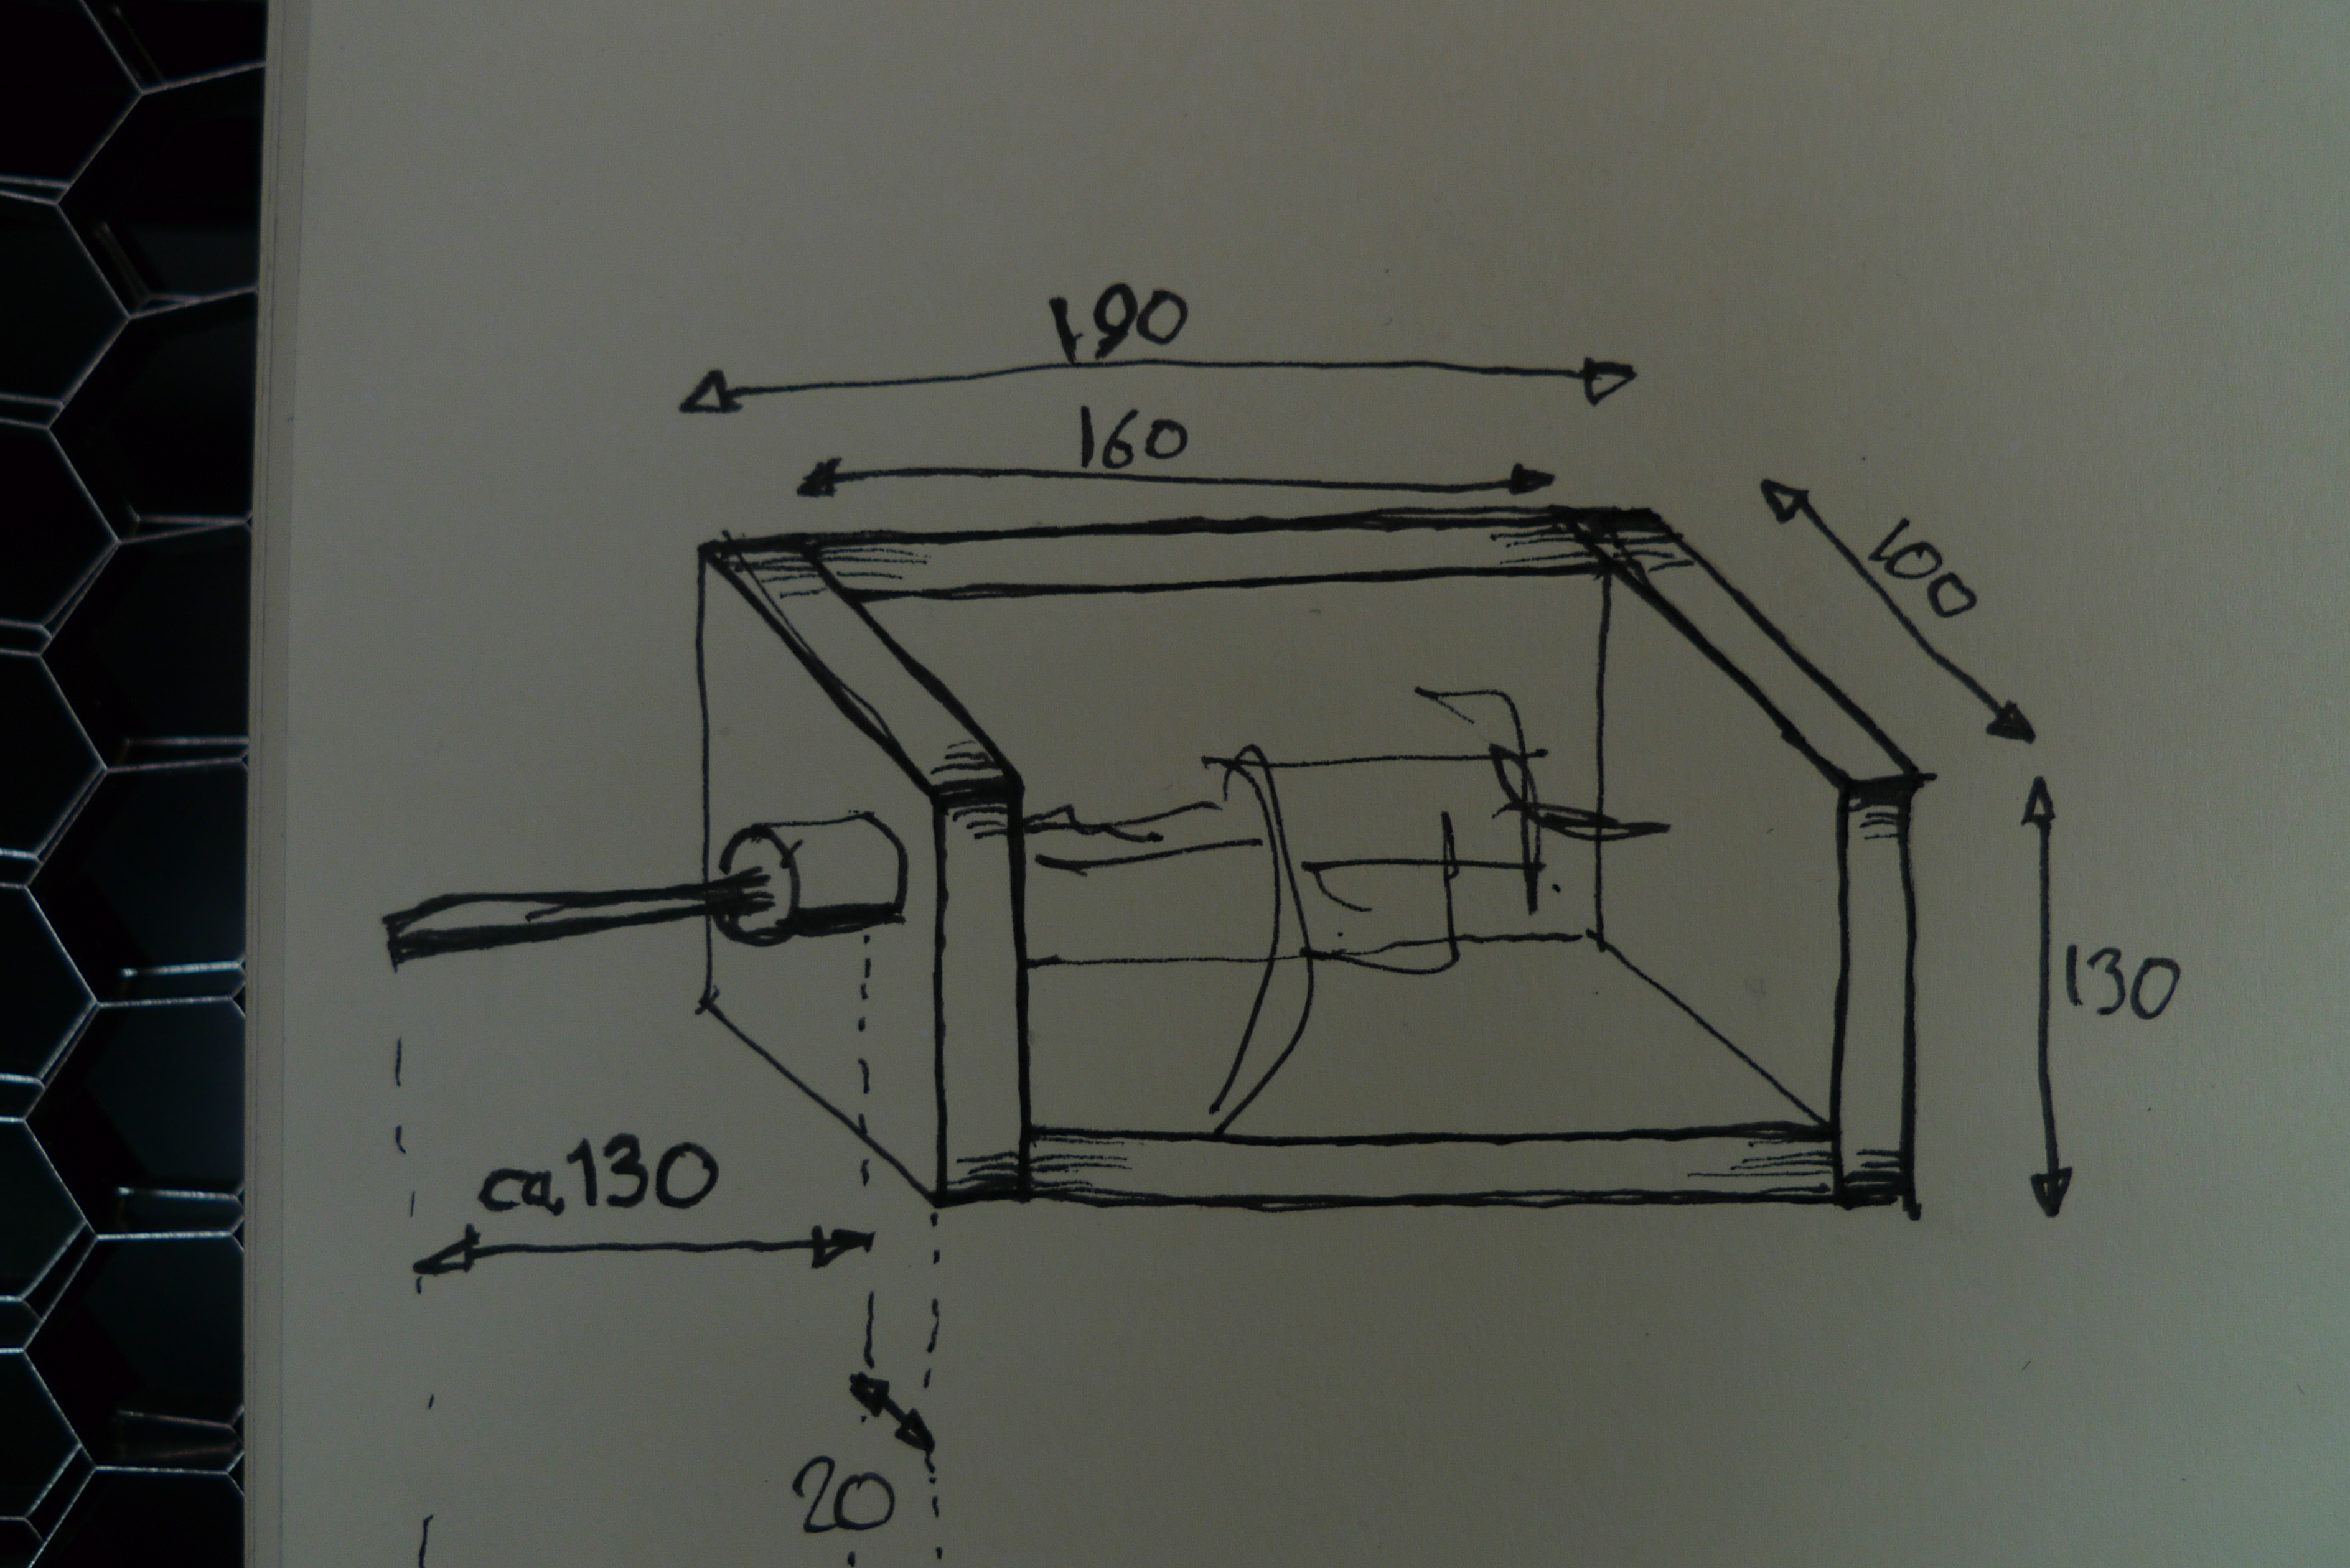 190
160
100
130
ca. 130
20